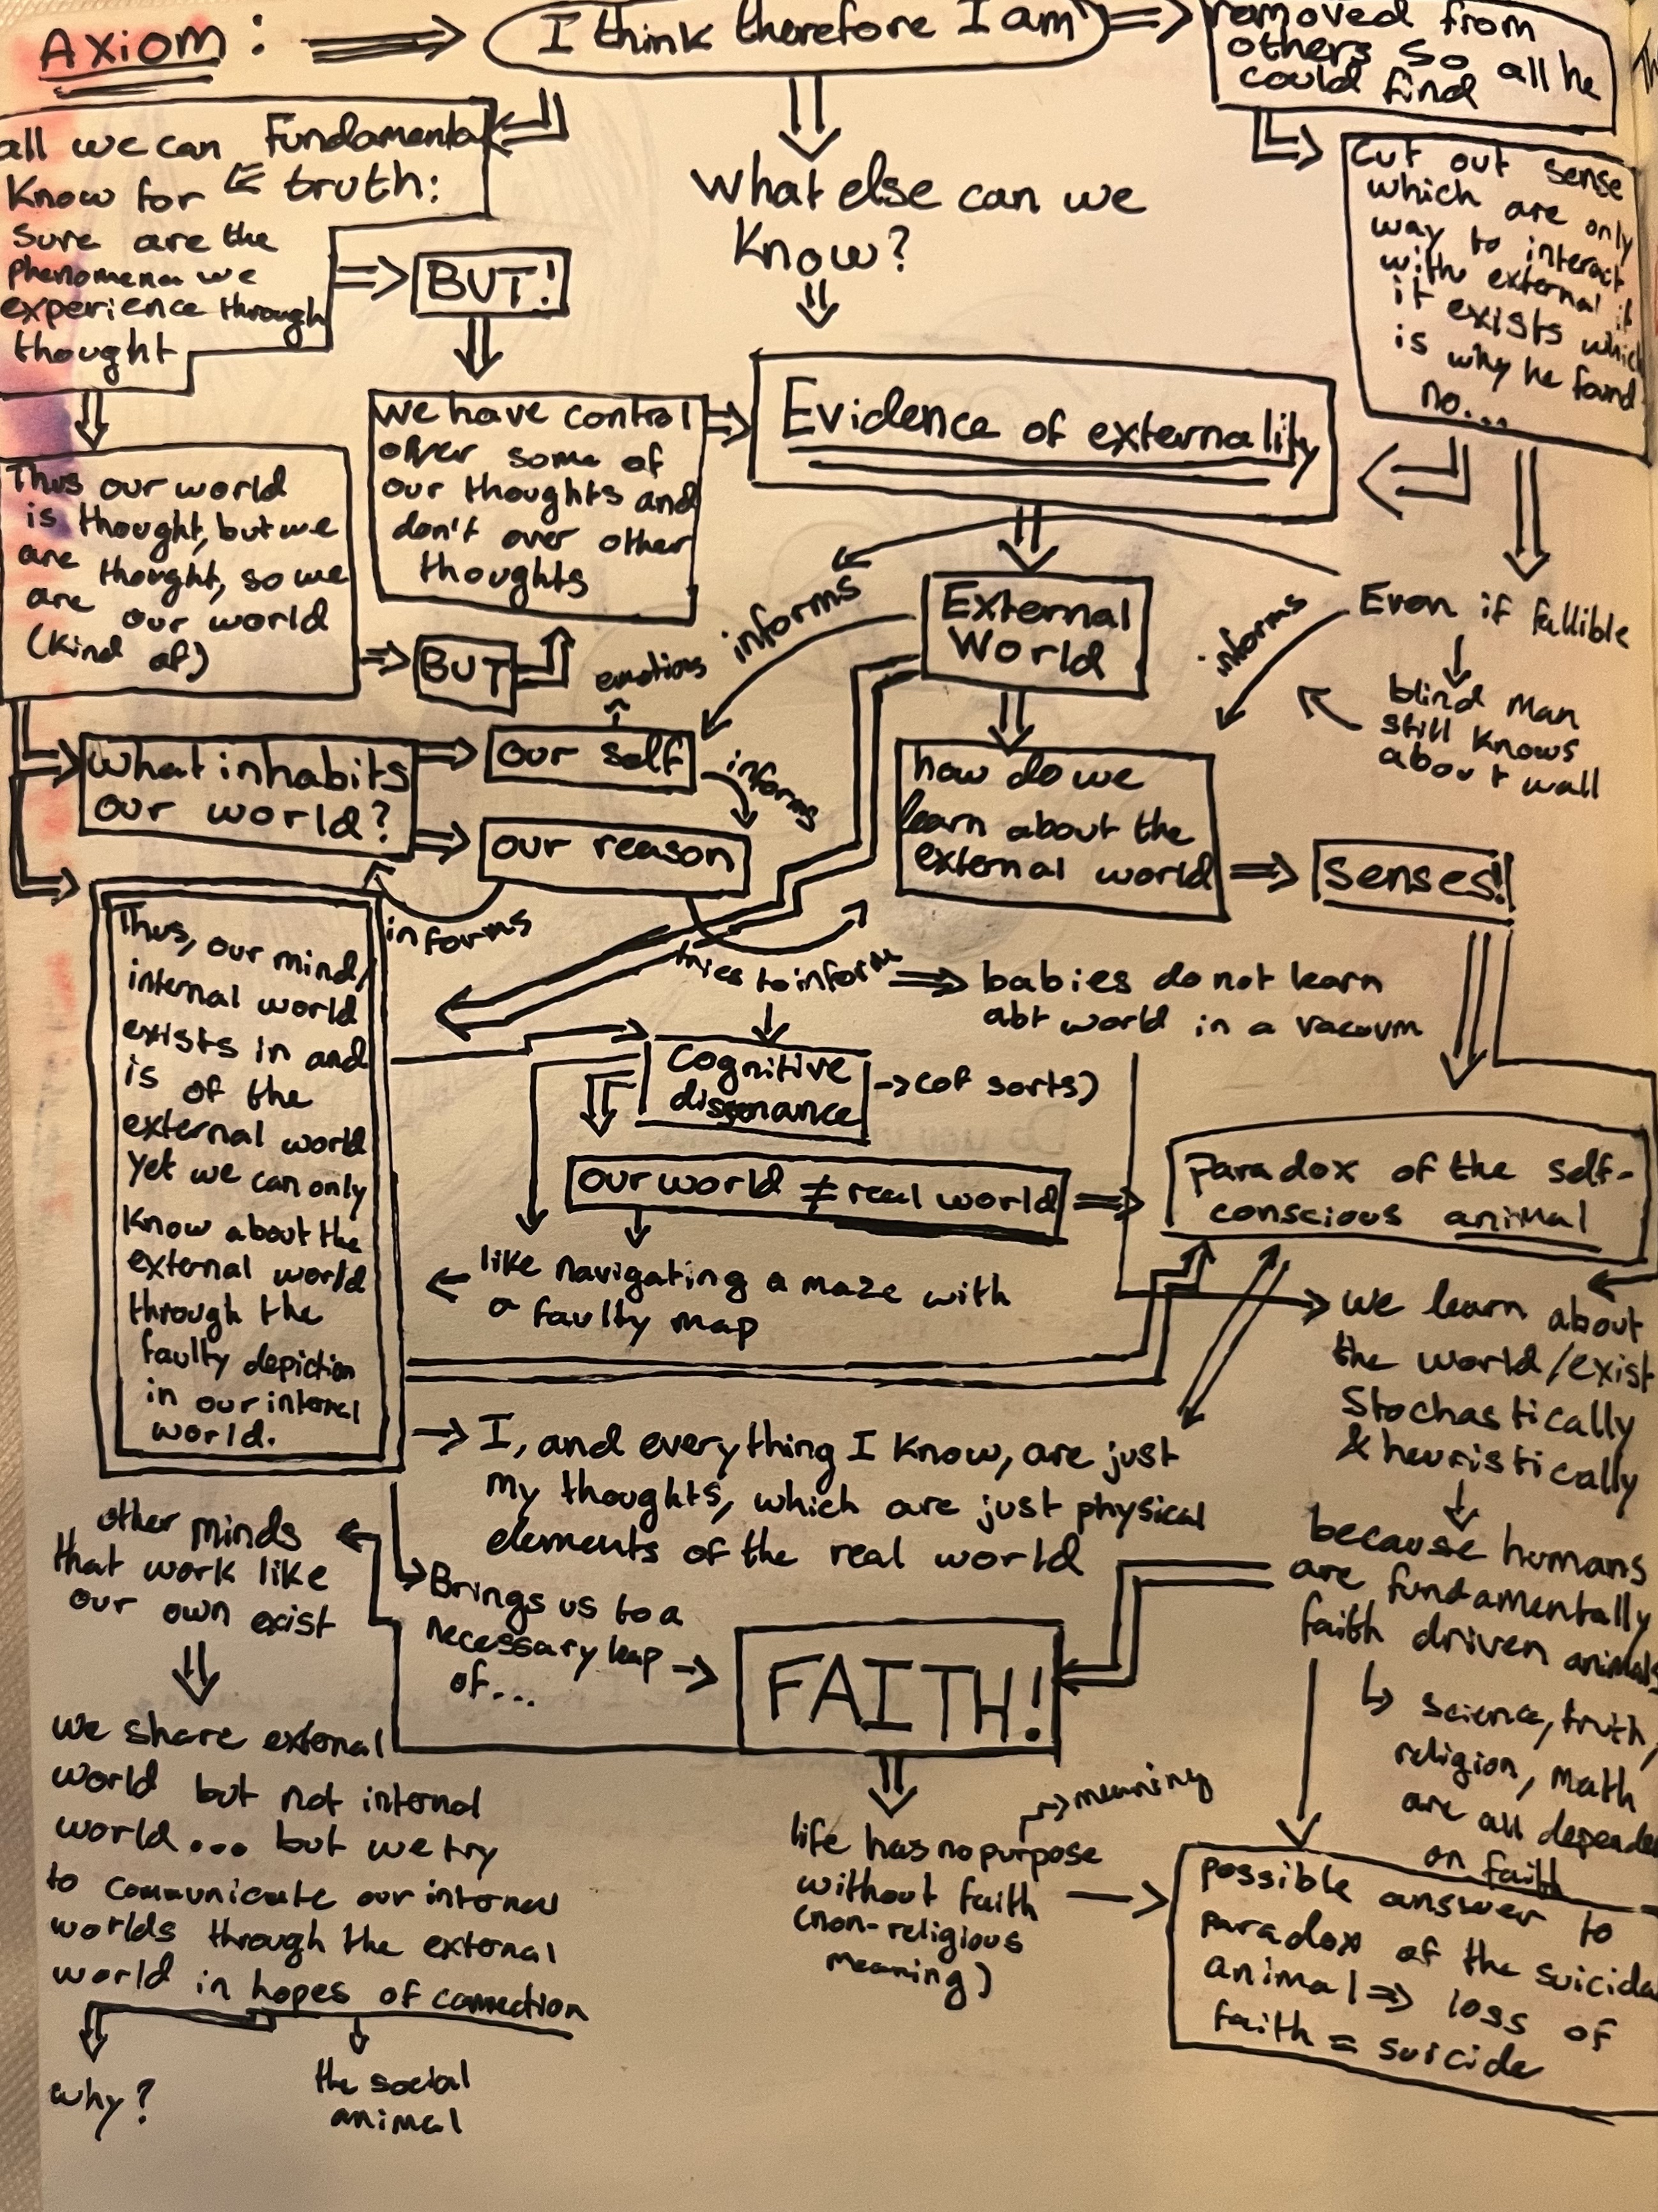 Axiom:
I think therefore I am
removed from
others so all he
could find
cut out sense
which are only
way to interact
with external if
it exists which
is why he found
no...
all we can
Know for
sure are the
phenomena we
experience through
thought
Fundamental
truth:
BUT!
What else can we
Know?
we have control
over some of
our thoughts and
don't over other
thoughts
Evidence of externality
Thus our world
is thought, but we
are thought, so we
are our world
(kind of)
BUT
External
World
informs
informs
Even if fallible
blind man
still knows
about wall
emotions
What inhabits
our world?
our self
informs
our reason
informs
tries to inform
how do we
learn about the
external world
Senses!!
babies do not learn
abt world in a vacuum
Thus, our mind/
internal world
exists in and
is of the
external world
yet we can only
know about the
external world
through the
faulty depiction
in our internal
world.
Cognitive
dissonance
(of sorts)
our world ≠ real world
like navigating a maze with
a faulty map
paradox of the self-
conscious animal
we learn about
the world/exist
Stochastically
& heuristically
because humans
are fundamentally
faith driven animals
science, truth,
religion, math
are all
on faith
I, and everything I know, are just
my thoughts, which are just physical
elements of the real world
Brings us to a
necessary leap
of...
FAITH!
other minds
that work like
our own exist
we share external
world but not internal
world... but we try
to communicate our internal
worlds through the external
world in hopes of connection
why?
the social
animal
life has no purpose
without faith
(non-religious
meaning)
meaning
possible answer to
paradox of the
animal ⇒ loss of
faith = suicide